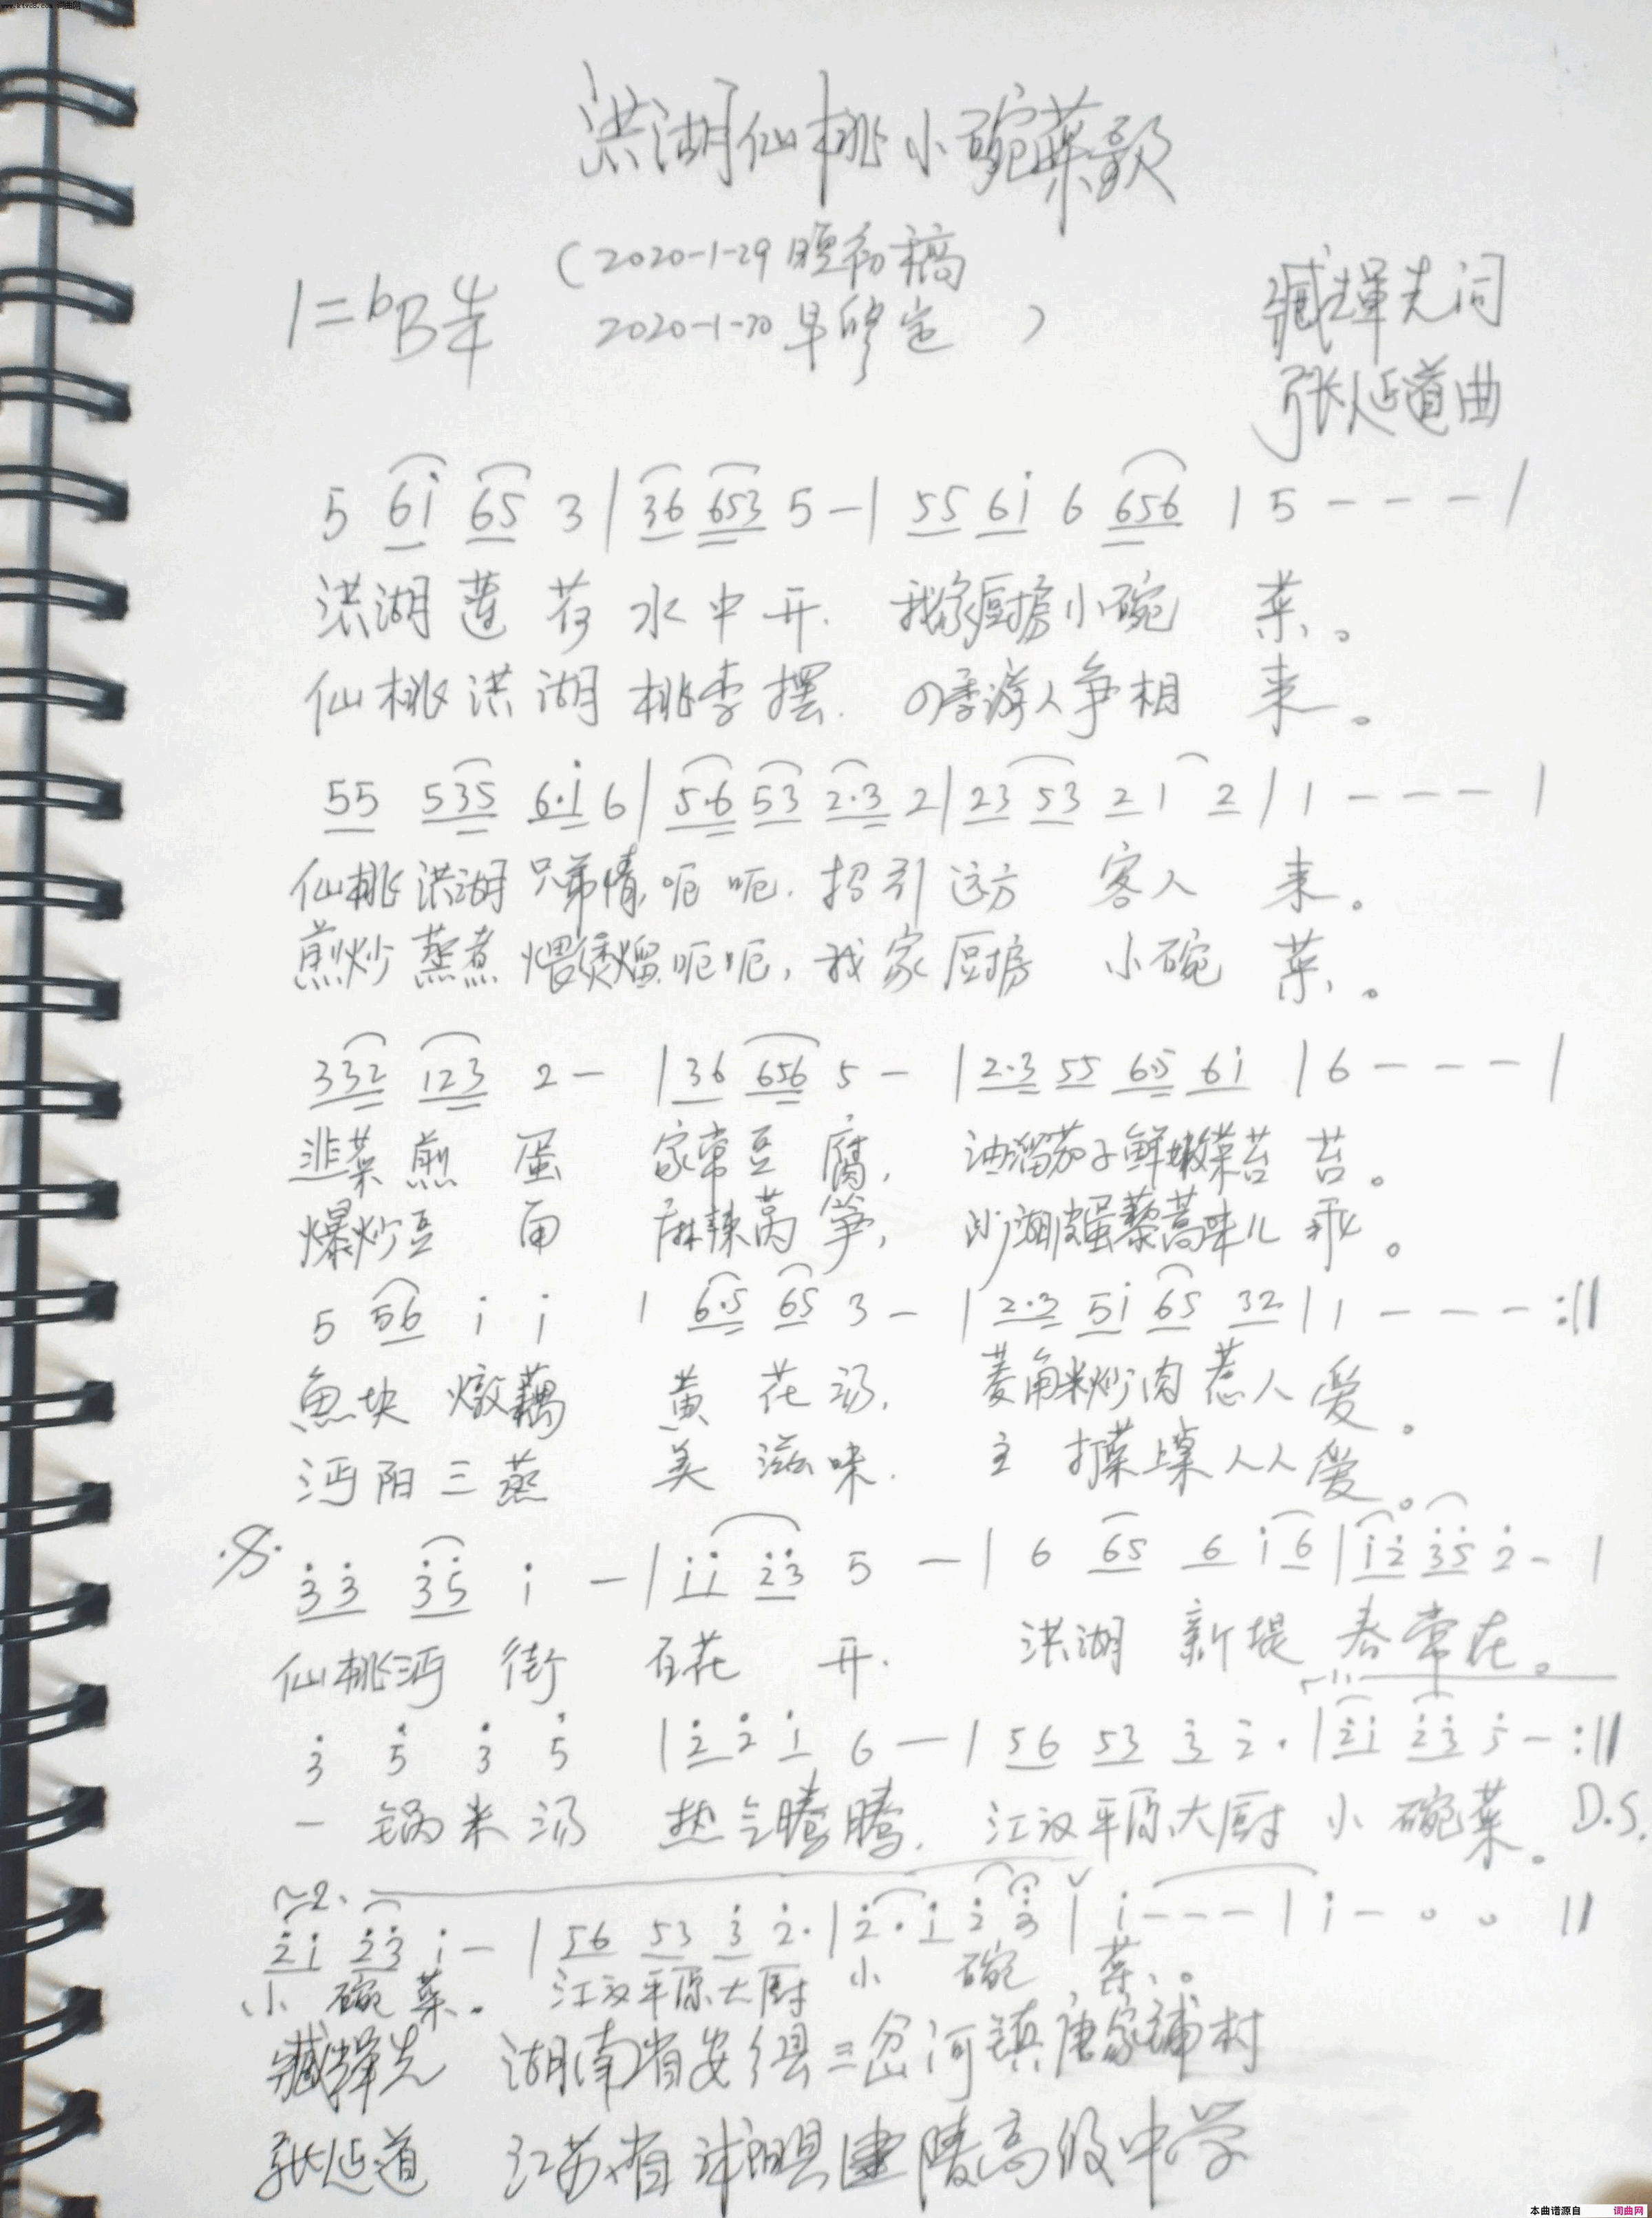 www.ktvc8.com 词曲网
洪湖仙桃小碗菜歌
(2020-1-29晚初稿
1=♭B 4/4
2020-1-30早修定)
臧辉先词
张延道曲
5 6i 65 3 | 36 653 5 - | 55 6i 6 656 | 5 - - - |
洪湖莲花水中开. 我家厨房小碗菜。
仙桃洪湖桃李摆. 四季游人争相来。
55 535 6·i 6 | 5·6 53 2·3 2 | 23 53 2 1 2 | 1 - - - |
仙桃洪湖兄弟情,呃呃. 招引远方客人来。
煎炒蒸煮煨煲熘,呃呃, 我家厨房小碗菜。
332 123 2 - | 36 656 5 - | 2·3 55 6·5 6i | 6 - - - |
韭菜煎蛋 家常豆腐, 油溜茄子鲜嫩菜苔苔。
爆炒豆角 麻辣莴笋, 沙湖皮蛋藜蒿味儿乖。
5 56 i i | 6·5 65 3 - | 2·3 5i 65 32 | 1 - - - :||
鱼块燉藕 黄花汤, 菱角米炒肉惹人爱。
沔阳三蒸 美滋味. 主打菜上桌人人爱。
3̇3̇ 3̇5̇ i - | ii 2̇3̇ 5 - | 6 65 6 i 6 | i2̇ 3̇5̇ 2̇ - |
仙桃沔街 百花开. 洪湖新堤春常在。
3̇ 5̇ 3̇ 5̇ | 2̇ 2̇ i 6 - | 56 53 3̇ 2̇· | 2̇i 2̇3̇ 5̇ - :||
一锅米汤 热气腾腾. 江汉平原大厨小碗菜。 D.S.
2. 2̇i 2̇3̇ i - | 56 53 3̇ 2̇· | 2̇· i 2̇ 3̇ | i - - - | i - 0 0 ||
小碗菜。 江汉平原大厨小碗菜。
臧辉先 湖南省安乡县三岔河镇唐家铺村
张延道 江苏省沭阳县建陵高级中学
本曲谱源自 词曲网